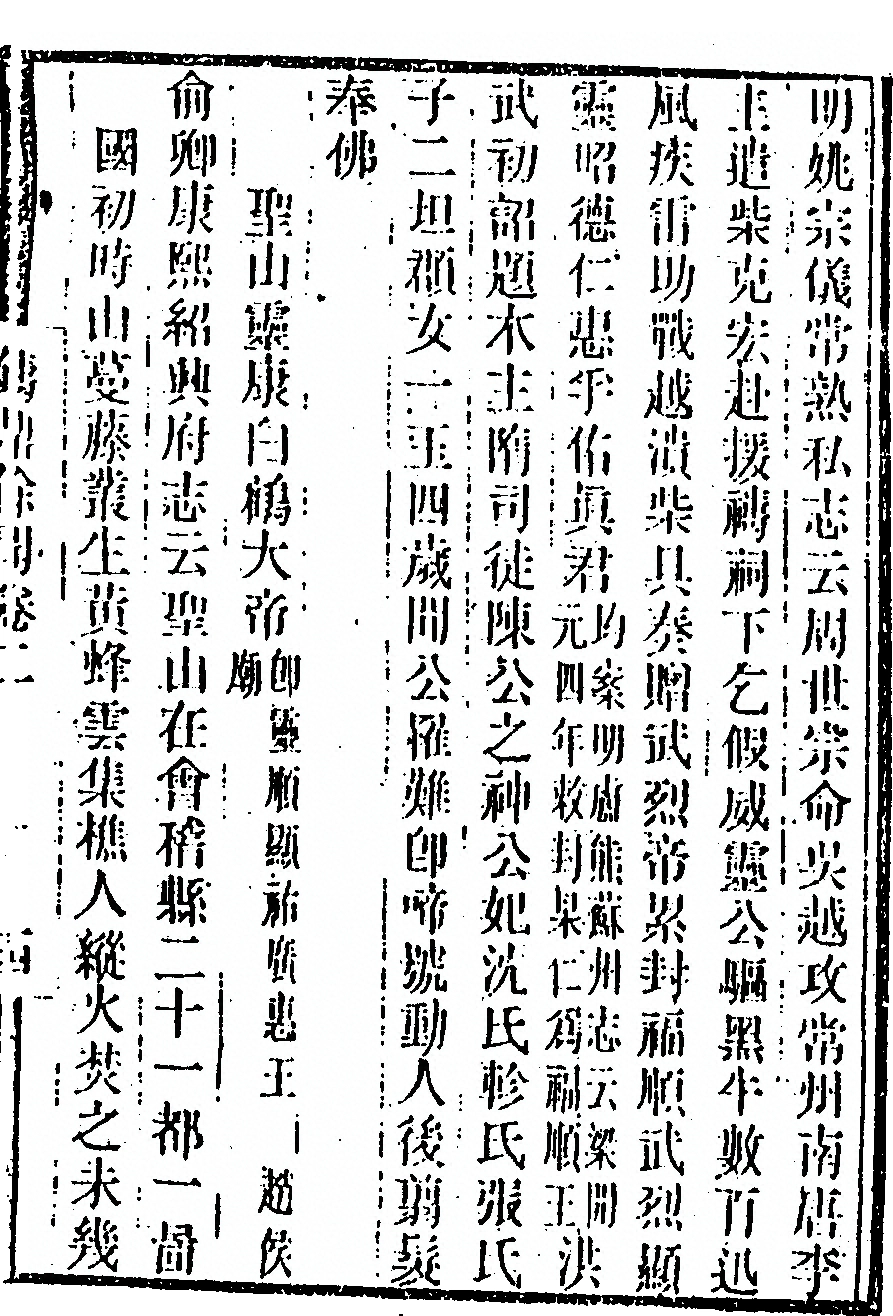 明姚宗儀常熟私志云周世宗命吳越攻常州南唐李
主遣柴克宏赴援禱祠下乞假威靈公驅黑牛數百迅
風疾雷助戰越潰柴具奏贈武烈帝累封福順武烈顯
靈昭德仁惠孚佑真君均案明盧熊蘇州志云梁開元四年敕封杲仁爲福順王洪
武初詔題木主隋司徒陳公之神公妃沈氏軫氏張氏
子二坦顏女一玉四歲聞公罹難卽啼號動人後翦髮
奉佛
聖山靈康白鶴大帝卽靈順顯祐廣惠王廟 趙侯
俞卿康熙紹興府志云聖山在會稽縣二十一都一啚
國初時山蔓藤叢生黃蜂雲集樵人縱火焚之未幾
卷二